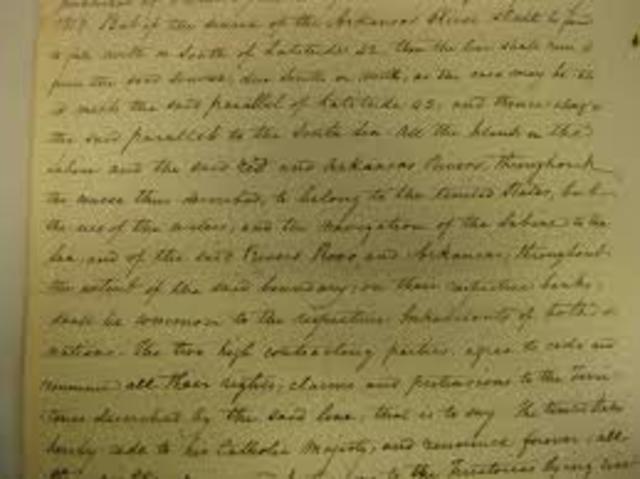 1819. But if the source of the Arkansas River shall be found
to fall north or South of Latitude 42, then the line shall run
from the said Source, due South or North, as the case may be, till
it meets the said parallel of Latitude 42, and thence along
the said parallel to the South Sea. All the Islands in the
Sabine and the said Red and Arkansas Rivers, throughout
the course thus described, to belong to the United States, but
the use of the waters, and the navigation of the Sabine to the
Sea, and of the said Rivers Roxo and Arkansas, throughout
the extent of the said boundary, on their respective banks,
shall be common to the respective Inhabitants of both
nations. The two high contracting parties, agree to cede and
renounce all their rights, claims and pretensions to the Terri
tories described by the said line, that is to say. The United States
hereby cede to his Catholic Majesty, and renounce forever, all
to the Territories lying